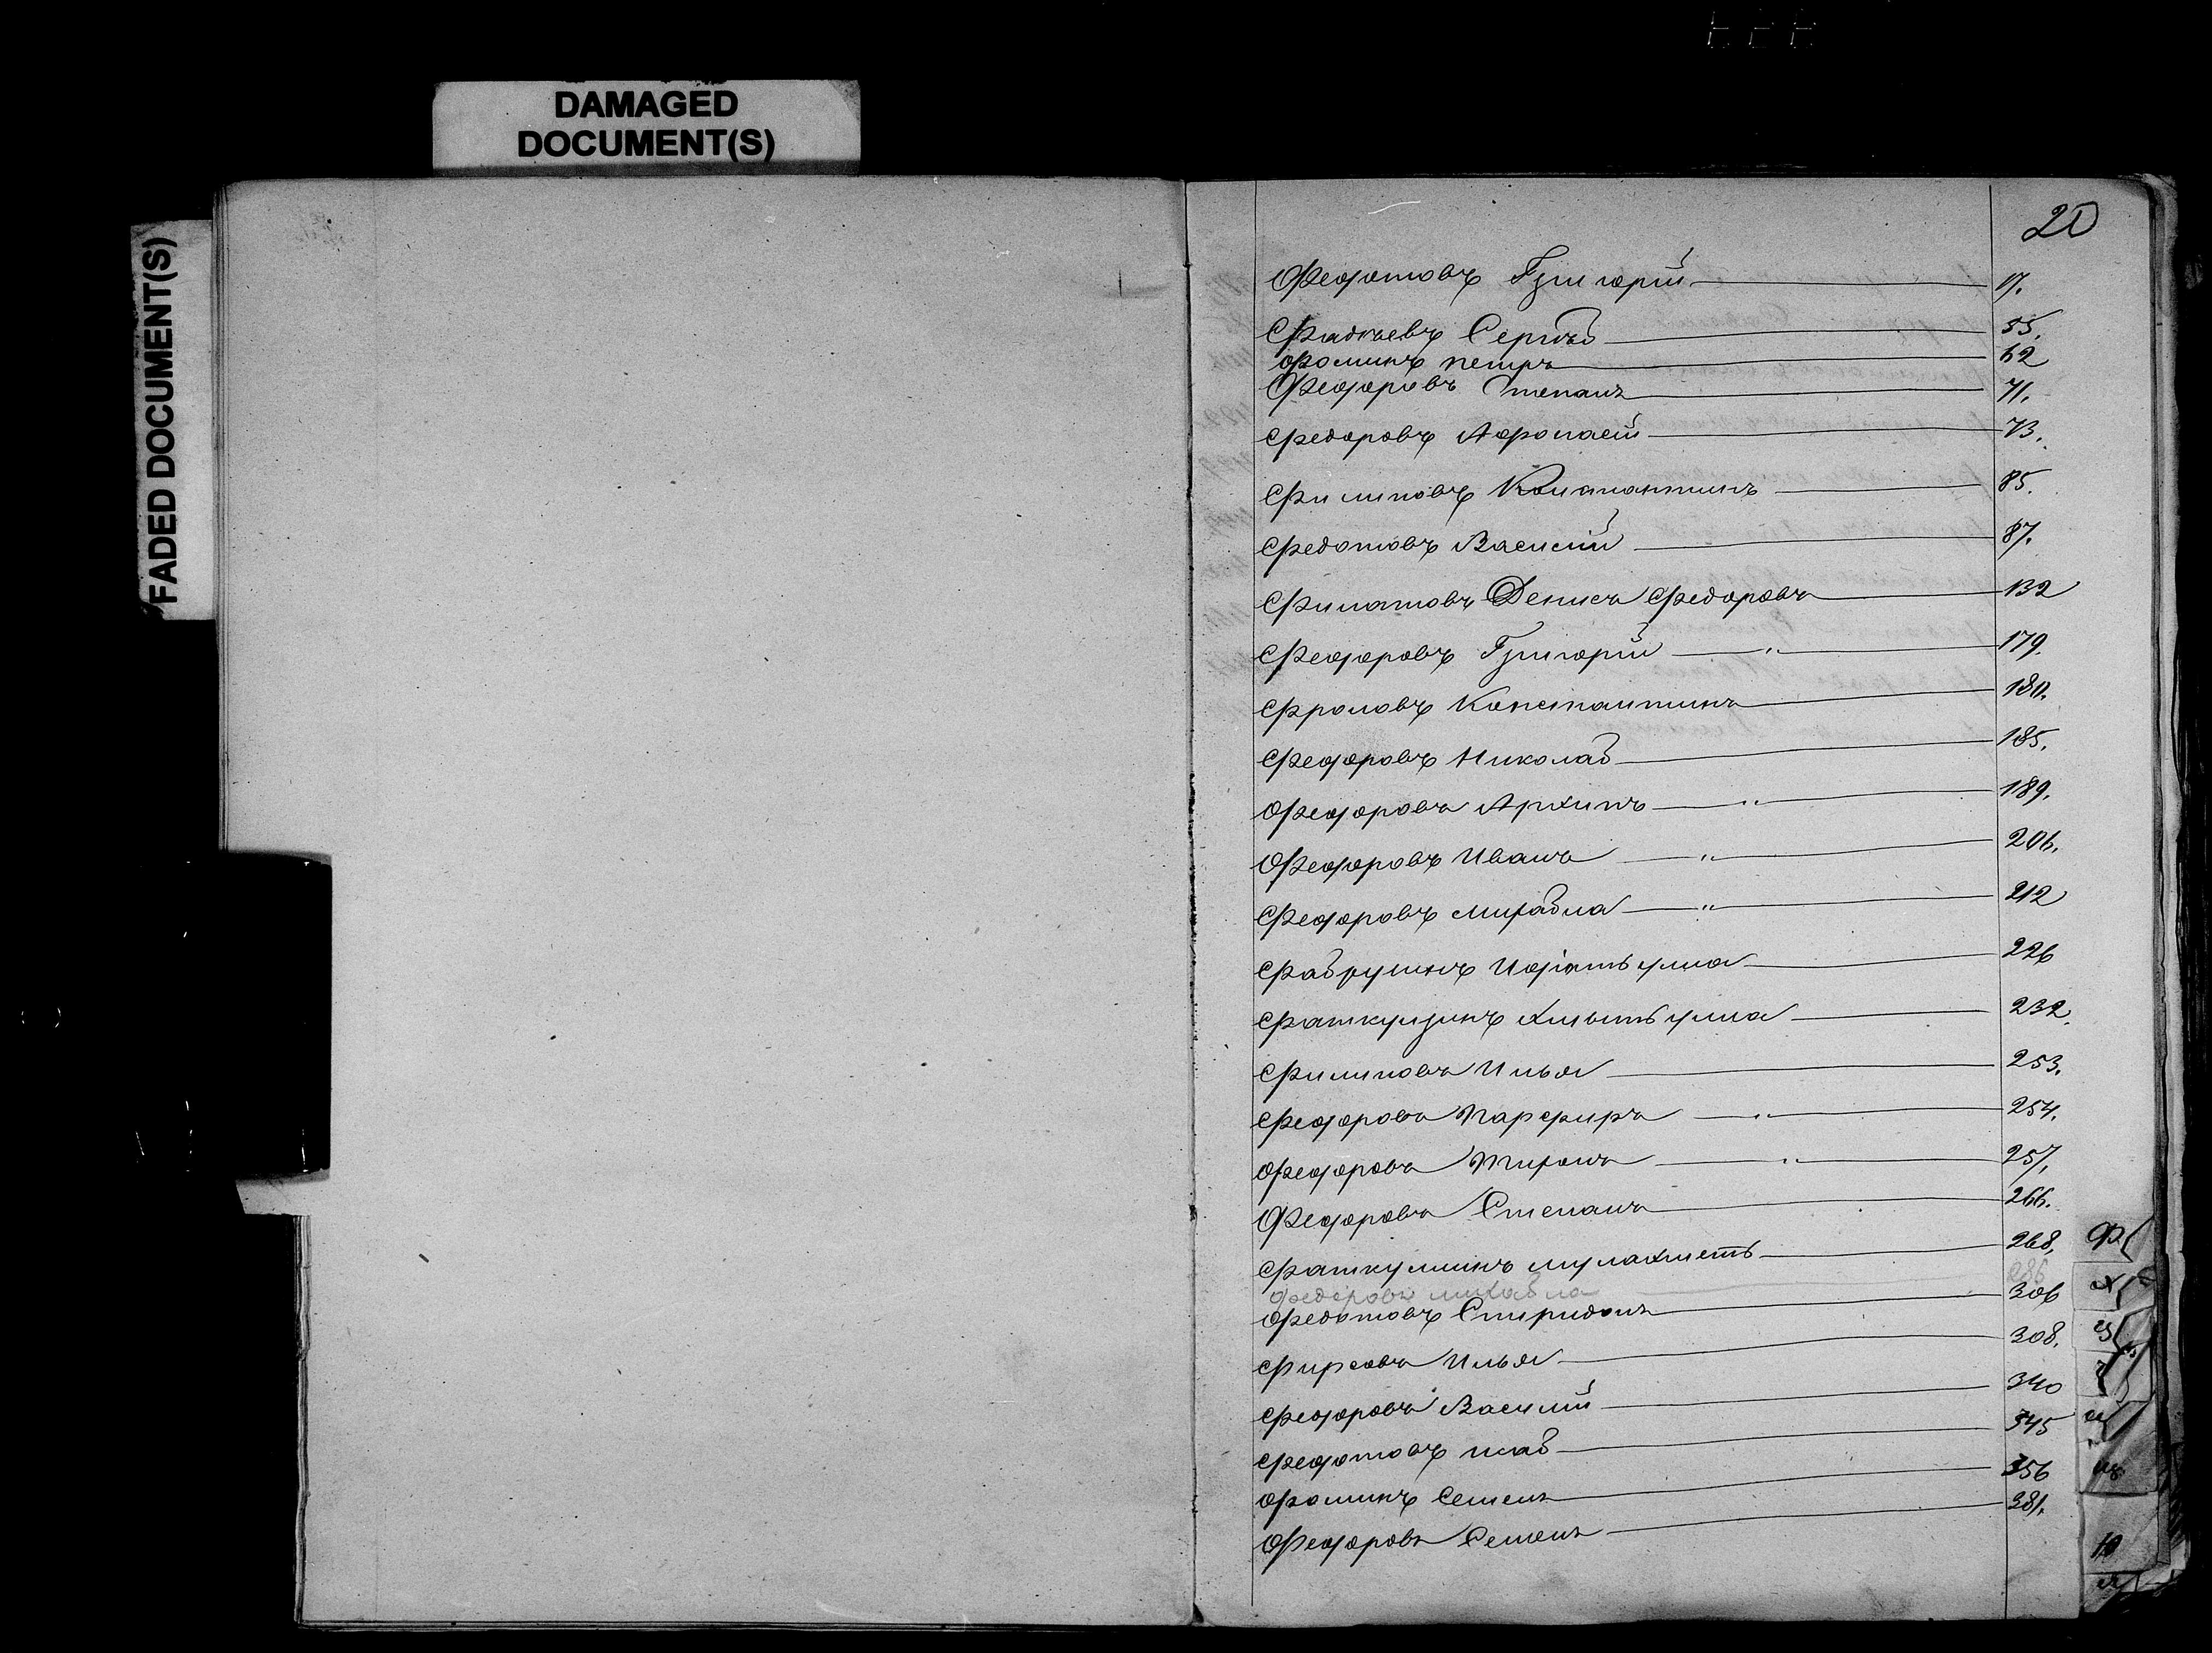 DAMAGED
DOCUMENT(S)
FADED DOCUMENT(S)
20
Федотовъ Григорій 17.
Фадѣевъ Сергѣй 55.
Фоминъ Петръ 62
Федоровъ Степанъ 71.
Федоровъ 73.
Филиповъ Константинъ 85.
Федотовъ Василій 87.
Филатовъ Денисъ Федоровъ 132
Федоровъ Григорій — " — 179.
Фроловъ Константинъ 180.
Федоровъ Николай 185.
Федоровъ Архипъ — " — 189.
Федоровъ Иванъ — " — 206.
Федоровъ Михайла — " — 212
226
232.
Филиповъ Илья 253.
Федоровъ Парфиръ — " — 254.
Федоровъ Тихонъ — " — 257.
Федоровъ Степанъ 266.
Фаткулинъ Мулахметъ 268.
Федоровъ Михайла 286
Федотовъ Спиридонъ 306
Фирсовъ Илья 308.
Федоровъ Василій 340
Федотовъ 345
Фоминъ Семенъ 356
Федоровъ Семенъ 381.
Ф
Х
Ю